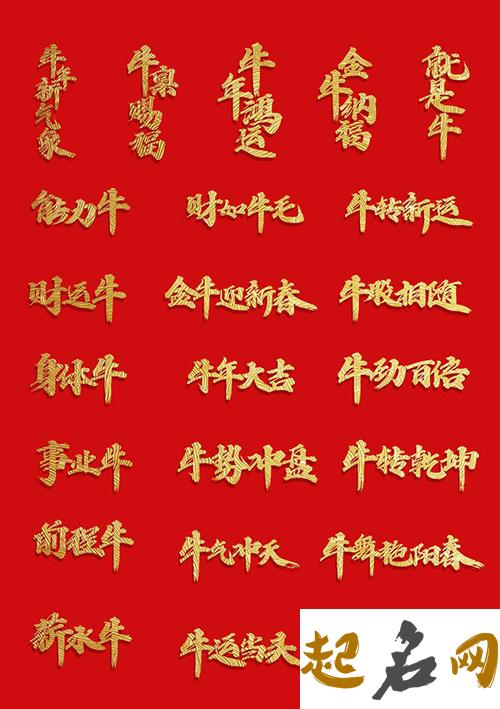 牛年新气象
牛气赐福
牛年鸿运
金牛纳福
就是牛
能力牛
财如牛毛
牛转新运
财运牛
金牛迎新春
牛股相随
身体牛
牛年大吉
牛劲百倍
事业牛
牛势冲盘
牛转乾坤
前程牛
牛气冲天
牛舞艳阳春
薪水牛
牛运当头
起名网